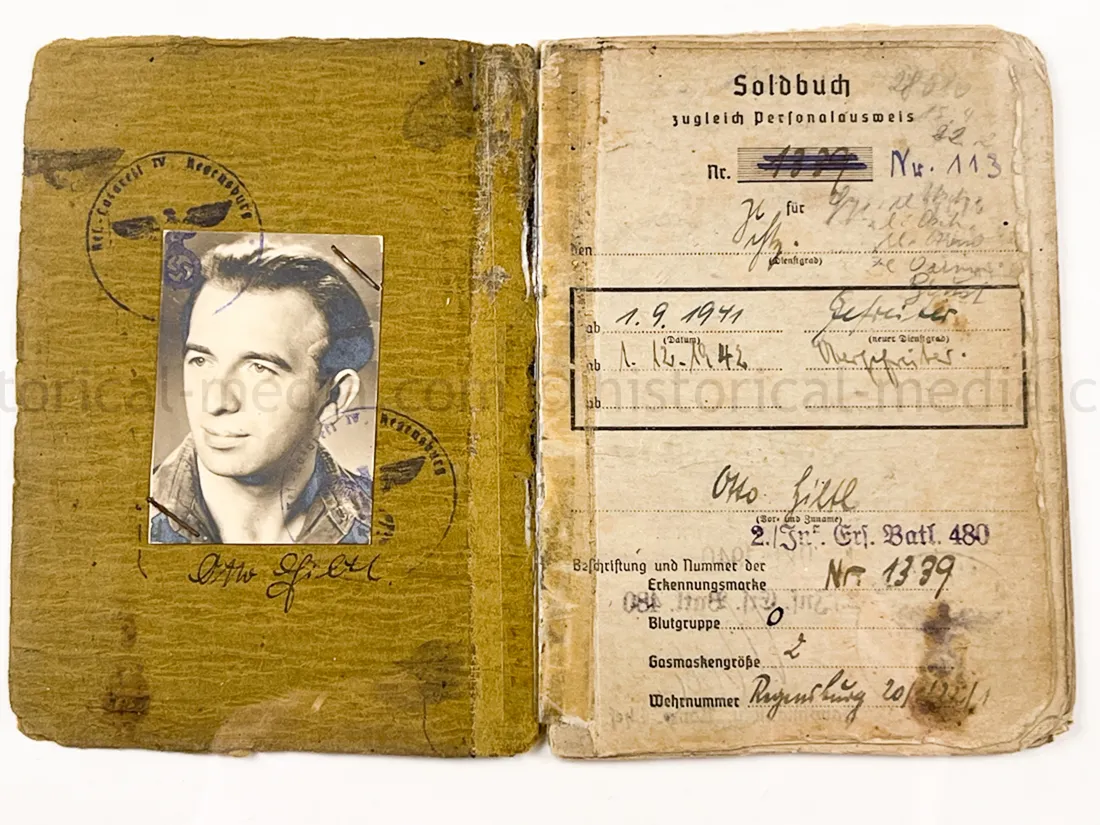 Res.-Lazarett IV Regensburg
Regensburg
Otto Hiltl.
Soldbuch
zugleich Personalausweis
Nr. 1339 Nr. 113
für
den
(Dienstgrad)
ab 1.9.1941 Gefreiter
(Datum) (neuer Dienstgrad)
ab 1.12.1942 Obergefreiter.
ab
Otto Hiltl
(Vor- und Zuname)
2./Inf. Ers. Batl. 480
Beschriftung und Nummer der
Erkennungsmarke Nr. 1339
Blutgruppe O
Gasmaskengröße 2
Wehrnummer Regensburg 20/
historical-media.com ©historical-media.c